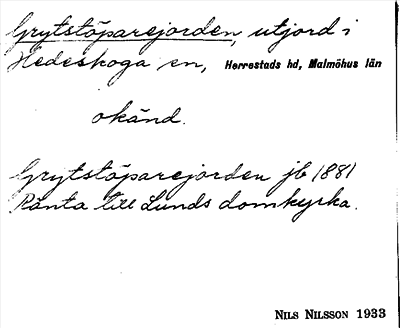 Grytstöparejorden, utjord i
Hedeskoga sn, Herrestads hd, Malmöhus län
okänd.
Grytstöparejorden jb 1881
Ränta till Lunds domkyrka.
NILS NILSSON 1933